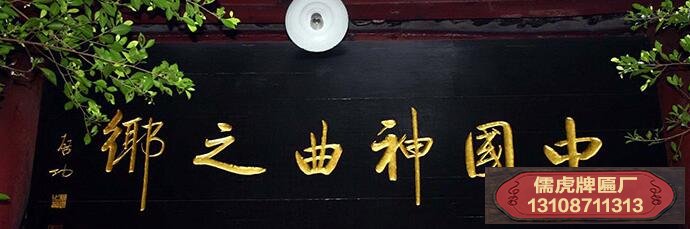 中國神曲之鄉
启功
儒虎牌匾厂
13108711313